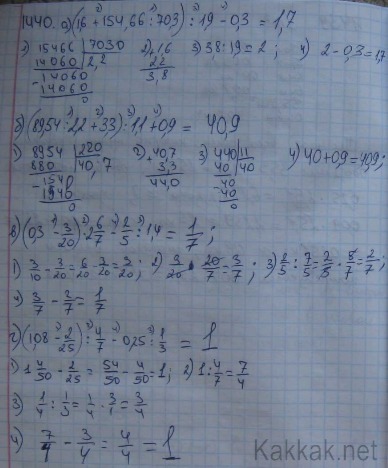 1440. а) (1,6 + 154,66 : 703) : 1,9 - 0,3 = 1,7
1) 15466 | 7030 2) 1,6 3) 3,8 : 1,9 = 2 ; 4) 2 - 0,3 = 1,7
14060 2,2 2,2
-14060 3,8
14060
0
б) (8954 : 22 + 33) : 11 + 0,9 = 40,9
1) 8954 | 220 2) +40,7 3) 440 | 11 4) 40 + 0,9 = 40,9;
880 40,7 3,3 40 40
-1540 44,0 -40
1540 40
0 0
в) (0,3 - 3/20) · 2 6/7 - 2/5 : 1,4 = 1/7 ;
1) 3/10 - 3/20 = 6/20 - 3/20 = 3/20 ; 2) 3/20 · 20/7 = 3/7 ; 3) 2/5 : 7/5 = 2/5 · 5/7 = 2/7 ;
4) 3/7 - 2/7 = 1/7
г) (1,08 - 2/25) : 4/7 - 0,25 : 1/3 = 1
1) 1 4/50 - 2/25 = 54/50 - 4/50 = 1 ; 2) 1 : 4/7 = 7/4
3) 1/4 : 1/3 = 1/4 · 3/1 = 3/4
4) 7/4 - 3/4 = 4/4 = 1
Kakkak.net